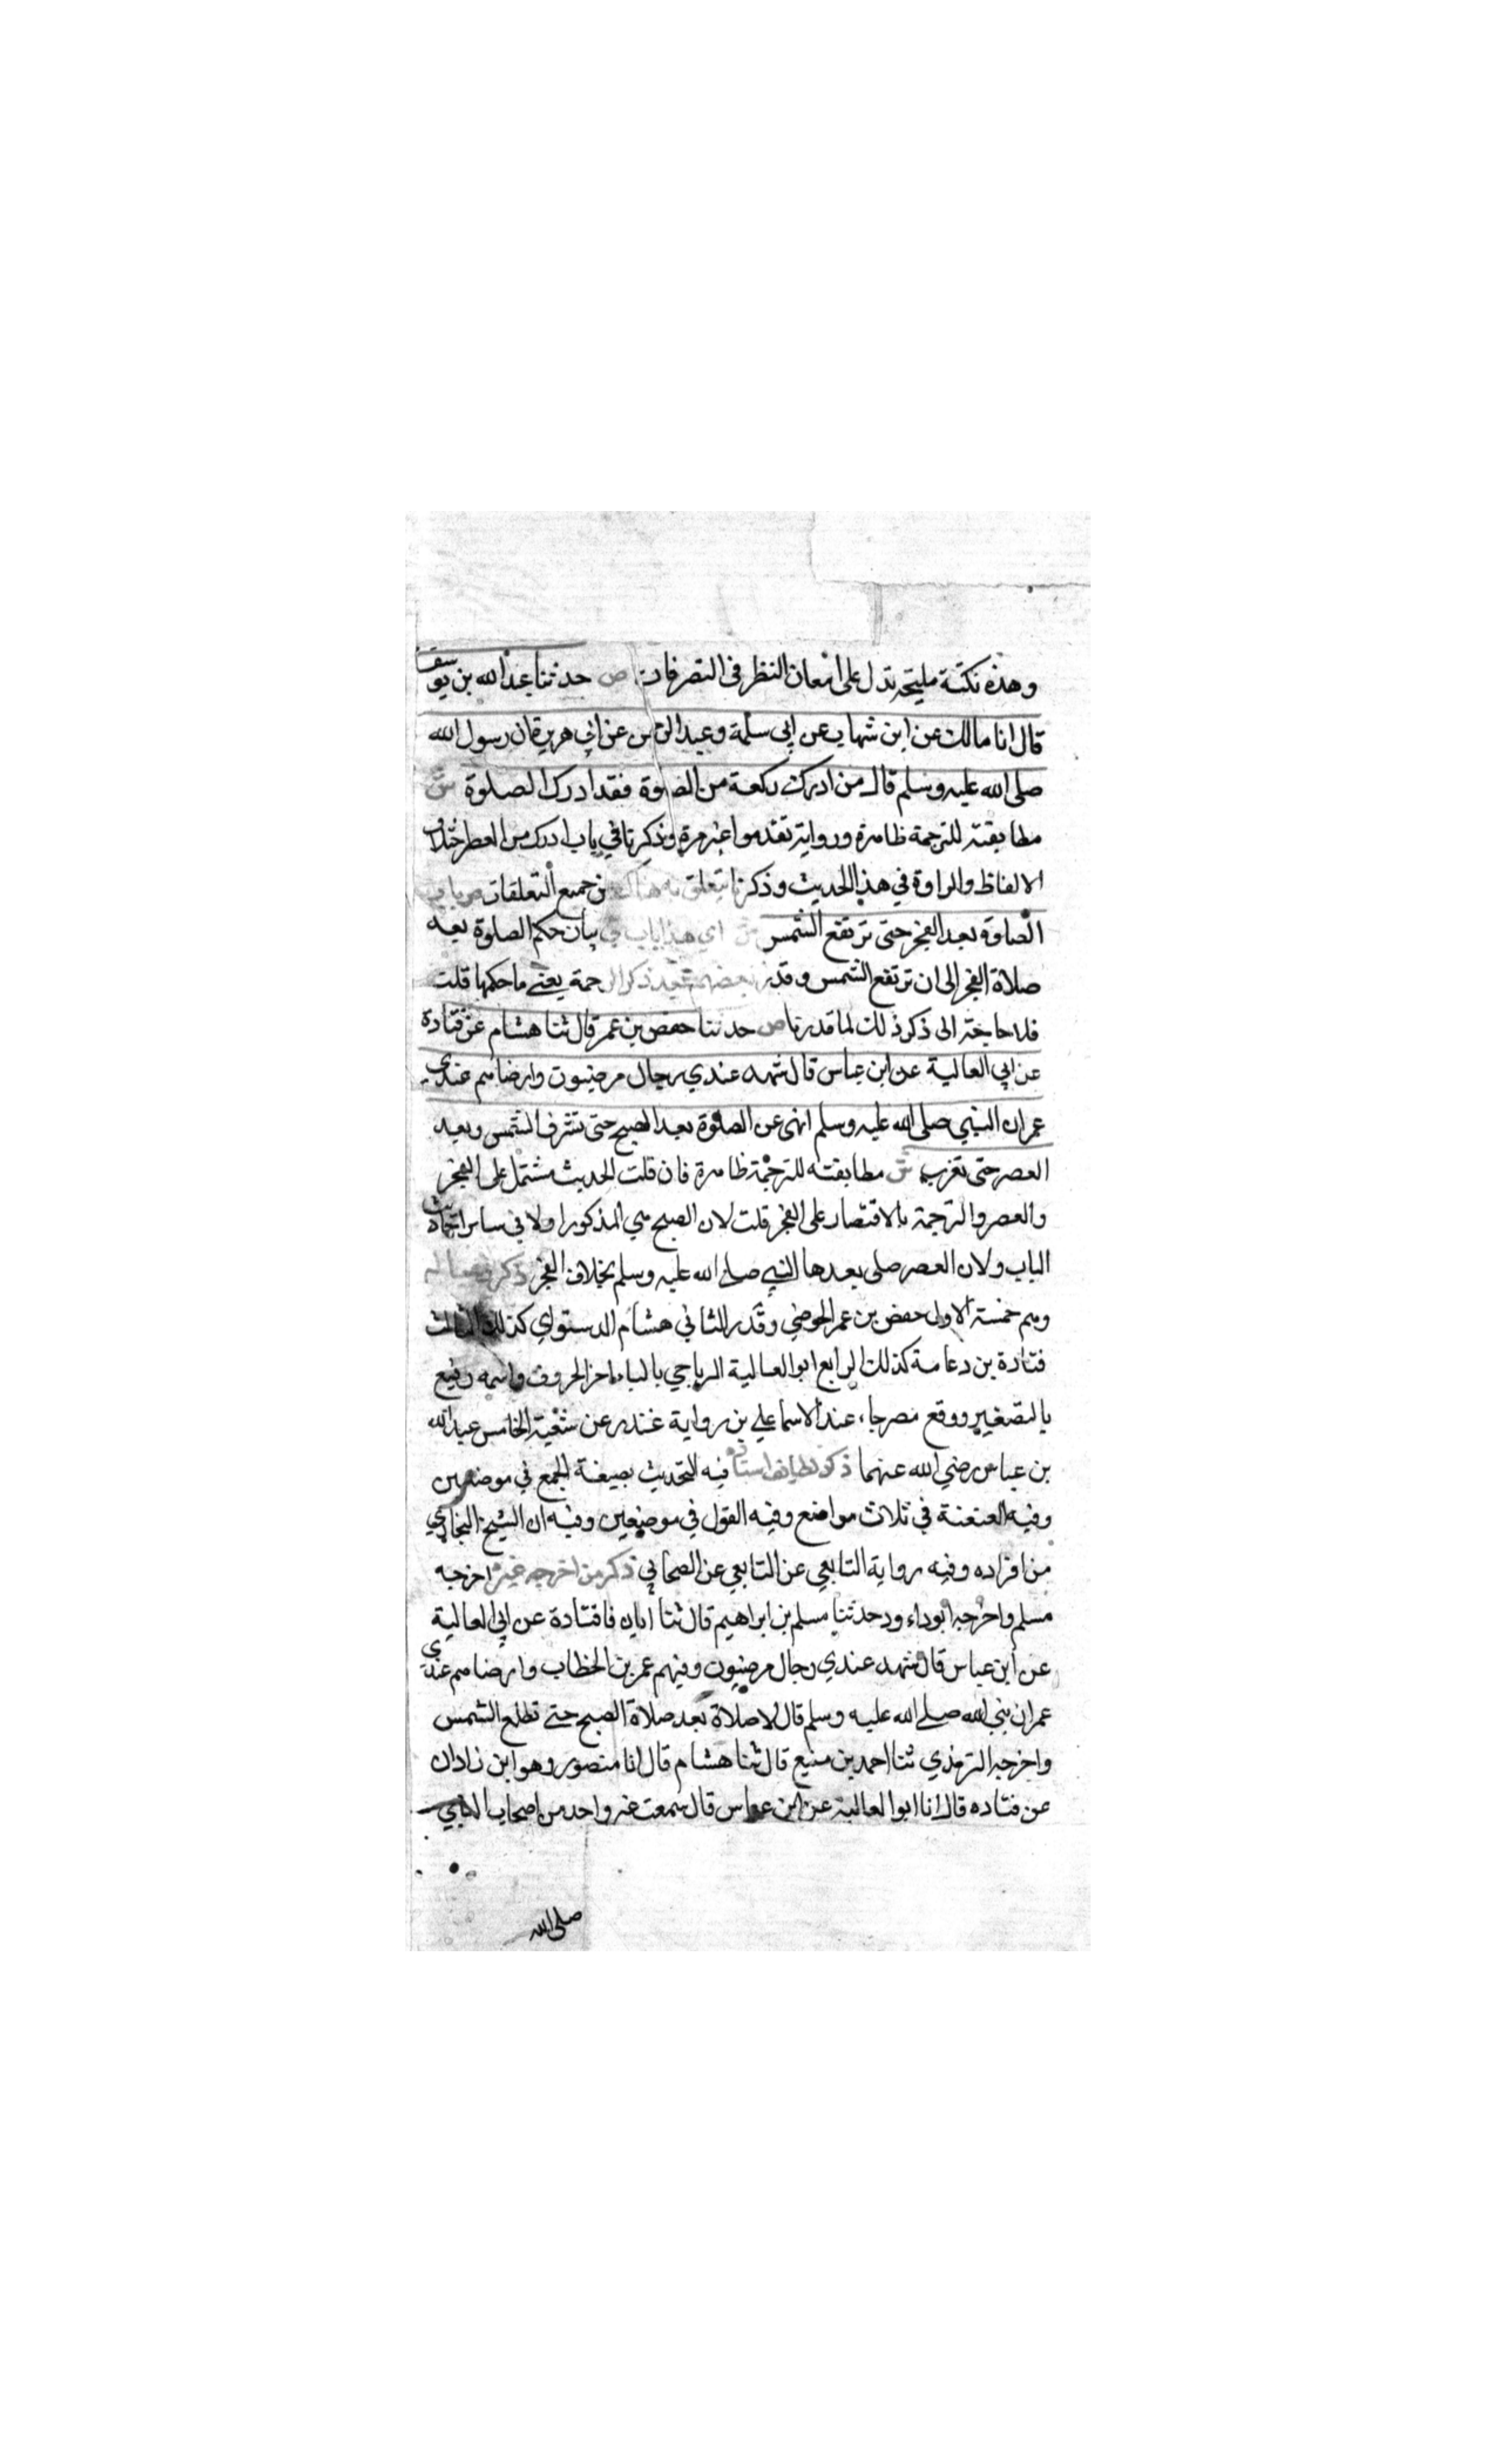 وهذه نكتة مليحة تدل على امعان النظر فى التصرفات ص حدثنا عبد الله بن يوسف
قال انا مالك عن ابن شهاب عن ابى سلمة وعبد الرحمن عن ابي هريرة ان رسول الله
صلى الله عليه وسلم قال من ادرك ركعة من الصلوة فقد ادرك الصلوة ش
مطابقته للترجمة ظاهرة ورواية تقدموا غير مرة وذكرنا في باب ادرك من العصر اختلاف
الالفاظ والراوة في هذا الحديث وذكرنا يتعلق به هناك من جميع التعلقات ص باب
الصلوة بعد الفجر حتى ترتفع الشمس ش اي هذا باب في بيان حكم الصلوة بعد
صلاة الفجر الى ان ترتفع الشمس وقدر بعضهم بعد ذكر الترجمة يعني ما حكمها قلت
فلا حاجة الى ذكر ذلك لما قدرنا ص حدثنا حفص بن عمر قال ثنا هشام عن قتادة
عن ابي العالية عن ابن عباس قال شهد عندي رجال مرضيون وارضاهم عندي
عمر ان النبي صلى الله عليه وسلم انهى عن الصلوة بعد الصبح حتى تشرق الشمس وبعد
العصر حتى تغرب ش مطابقته للترجمة ظاهرة فان قلت الحديث مشتمل على الفجر
والعصر والترجمة بالاقتصار على الفجر قلت لان الصبح هي المذكورا ولا في سائر احاديث
الباب ولان العصر صلى بعدها النبي صلى الله عليه وسلم بخلاف الفجر ذكر رجاله
وهم خمسة الاول حفص بن عمر الحوضي وقدر الثاني هشام الدستواي كذلك الثالث
قتادة بن دعامة كذلك الرابع ابو العالية الرياحي بالياء اخر الحروف واسمه رفيع
بالتصغير ووقع مصرحاء عند الاسماعلي بن رواية غندر عن شعبة الخامس عبد الله
بن عباس رضي الله عنهما ذكر لطايف اسناده فيه التحديث بصيغة الجمع في موضعين
وفيه العنعنة في ثلاث مواضع وفيه القول في موضعين وفيه ان الشيخ البخاري
من افراده وفيه رواية التابعي عن التابعي عن الصحابي ذكر من اخرجه غيره اخرجه
مسلم واخرجه ابوداء ود حدثنا مسلم بن ابراهيم قال ثنا أبان فا قتادة عن ابي العالية
عن ابن عباس قال شهد عندي رجال مرضيون وفيهم عمر بن الخطاب وارضاهم عندي
عمر ان نبي الله صلى الله عليه وسلم قال لا صلاة بعد صلاة الصبح حتى تطلع الشمس
واخرجه الترمذي ثنا احمد بن منيع قال ثنا هشام قال انا منصور وهو ابن زادان
عن قتاده قال انا ابو العالية عن ابن عباس قال سمعت غر واحد من اصحاب النبي
صلى الله